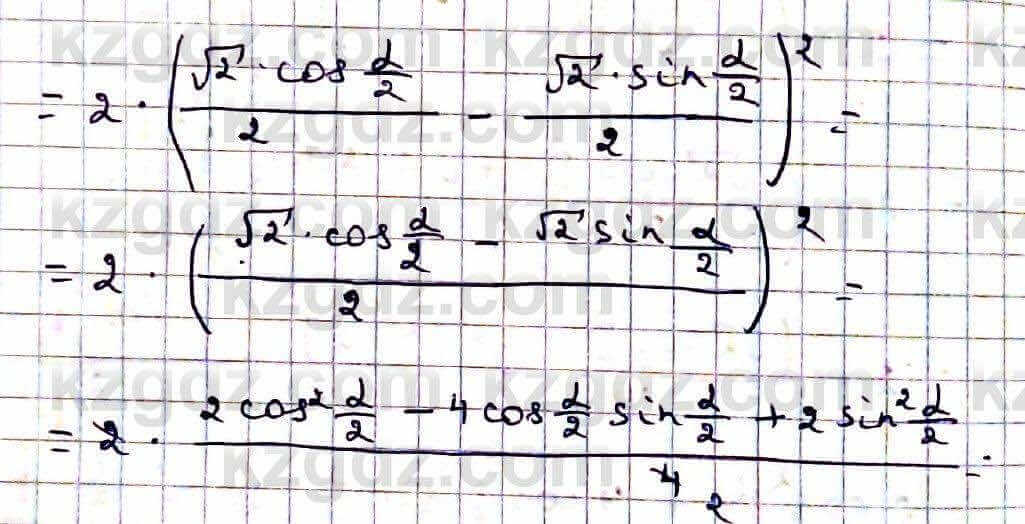 = 2 · (√2 · cos α/2 / 2 − √2 · sin α/2 / 2)² =
= 2 · (√2 · cos α/2 − √2 sin α/2 / 2)² =
= 2 · 2 cos² α/2 − 4 cos α/2 sin α/2 + 2 sin² α/2 / 4 2 =
kzgdz.com